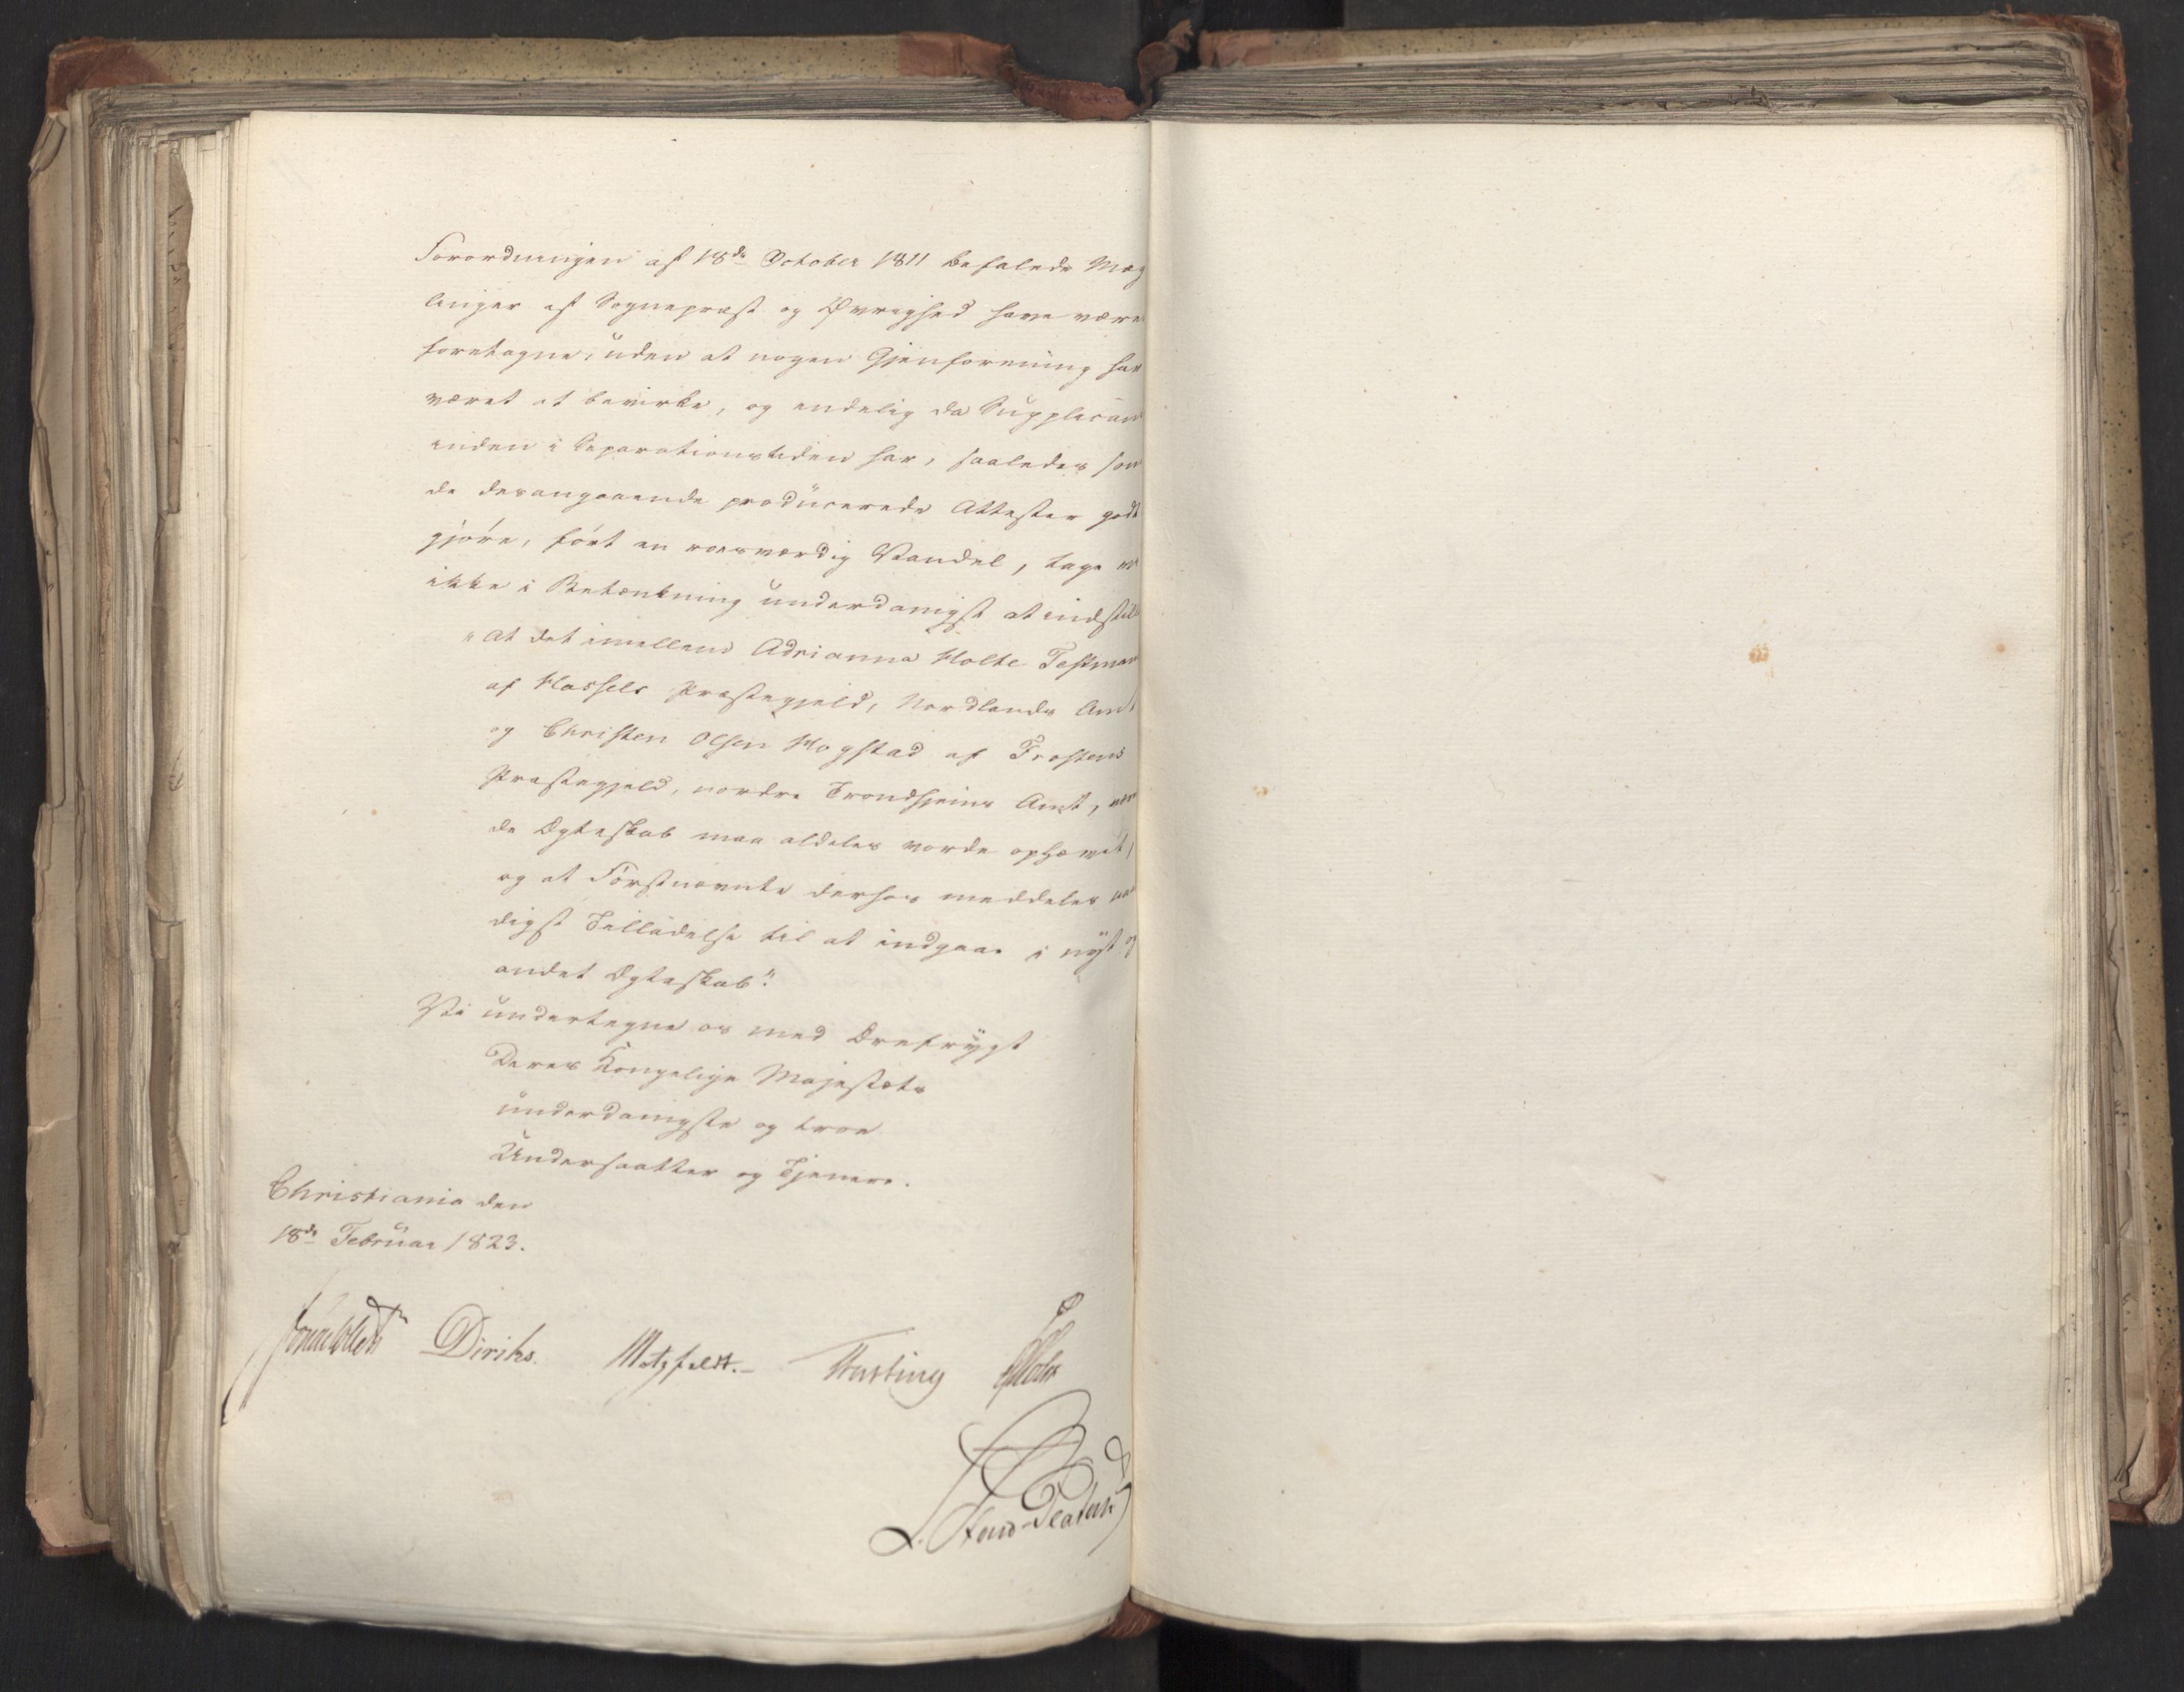 Forordningen af 18de October 1811 befalede Mæg
linger af Sognepræst og Øvrighed have være
foretagne, uden at nogen Gjenforening har
været at bevirke, og endelig da Supplican
inden i Separationstiden har, saaledes som
de desangaaende producerede Attester godt
gjøre, ført en roesværdig Vandel, tage vi
ikke i Betænkning underdanigst at indstille
"At det imellem Adrianna Holte Testman
af Hassels Præstegjeld, Nordlands Amt
og Christen Olsen Hogstad af Frostens
Præstegjeld, nordre Trondhjems Amt, være
de Ægteskab maa aldeles vorde ophævet,
og at Førstnævnte derhos meddeles naa
digst Tilladelse til at indgaae i nyt og
andet Ægteskab".
Vi undertegne os med Ærefrygt
Deres Kongelige Majestæts
underdanigste og troe
Undersaatter og Tjenere.
Christiania den
18de Februar 1823.
Jonas Collett Diriks. Motzfeldt. Fasting